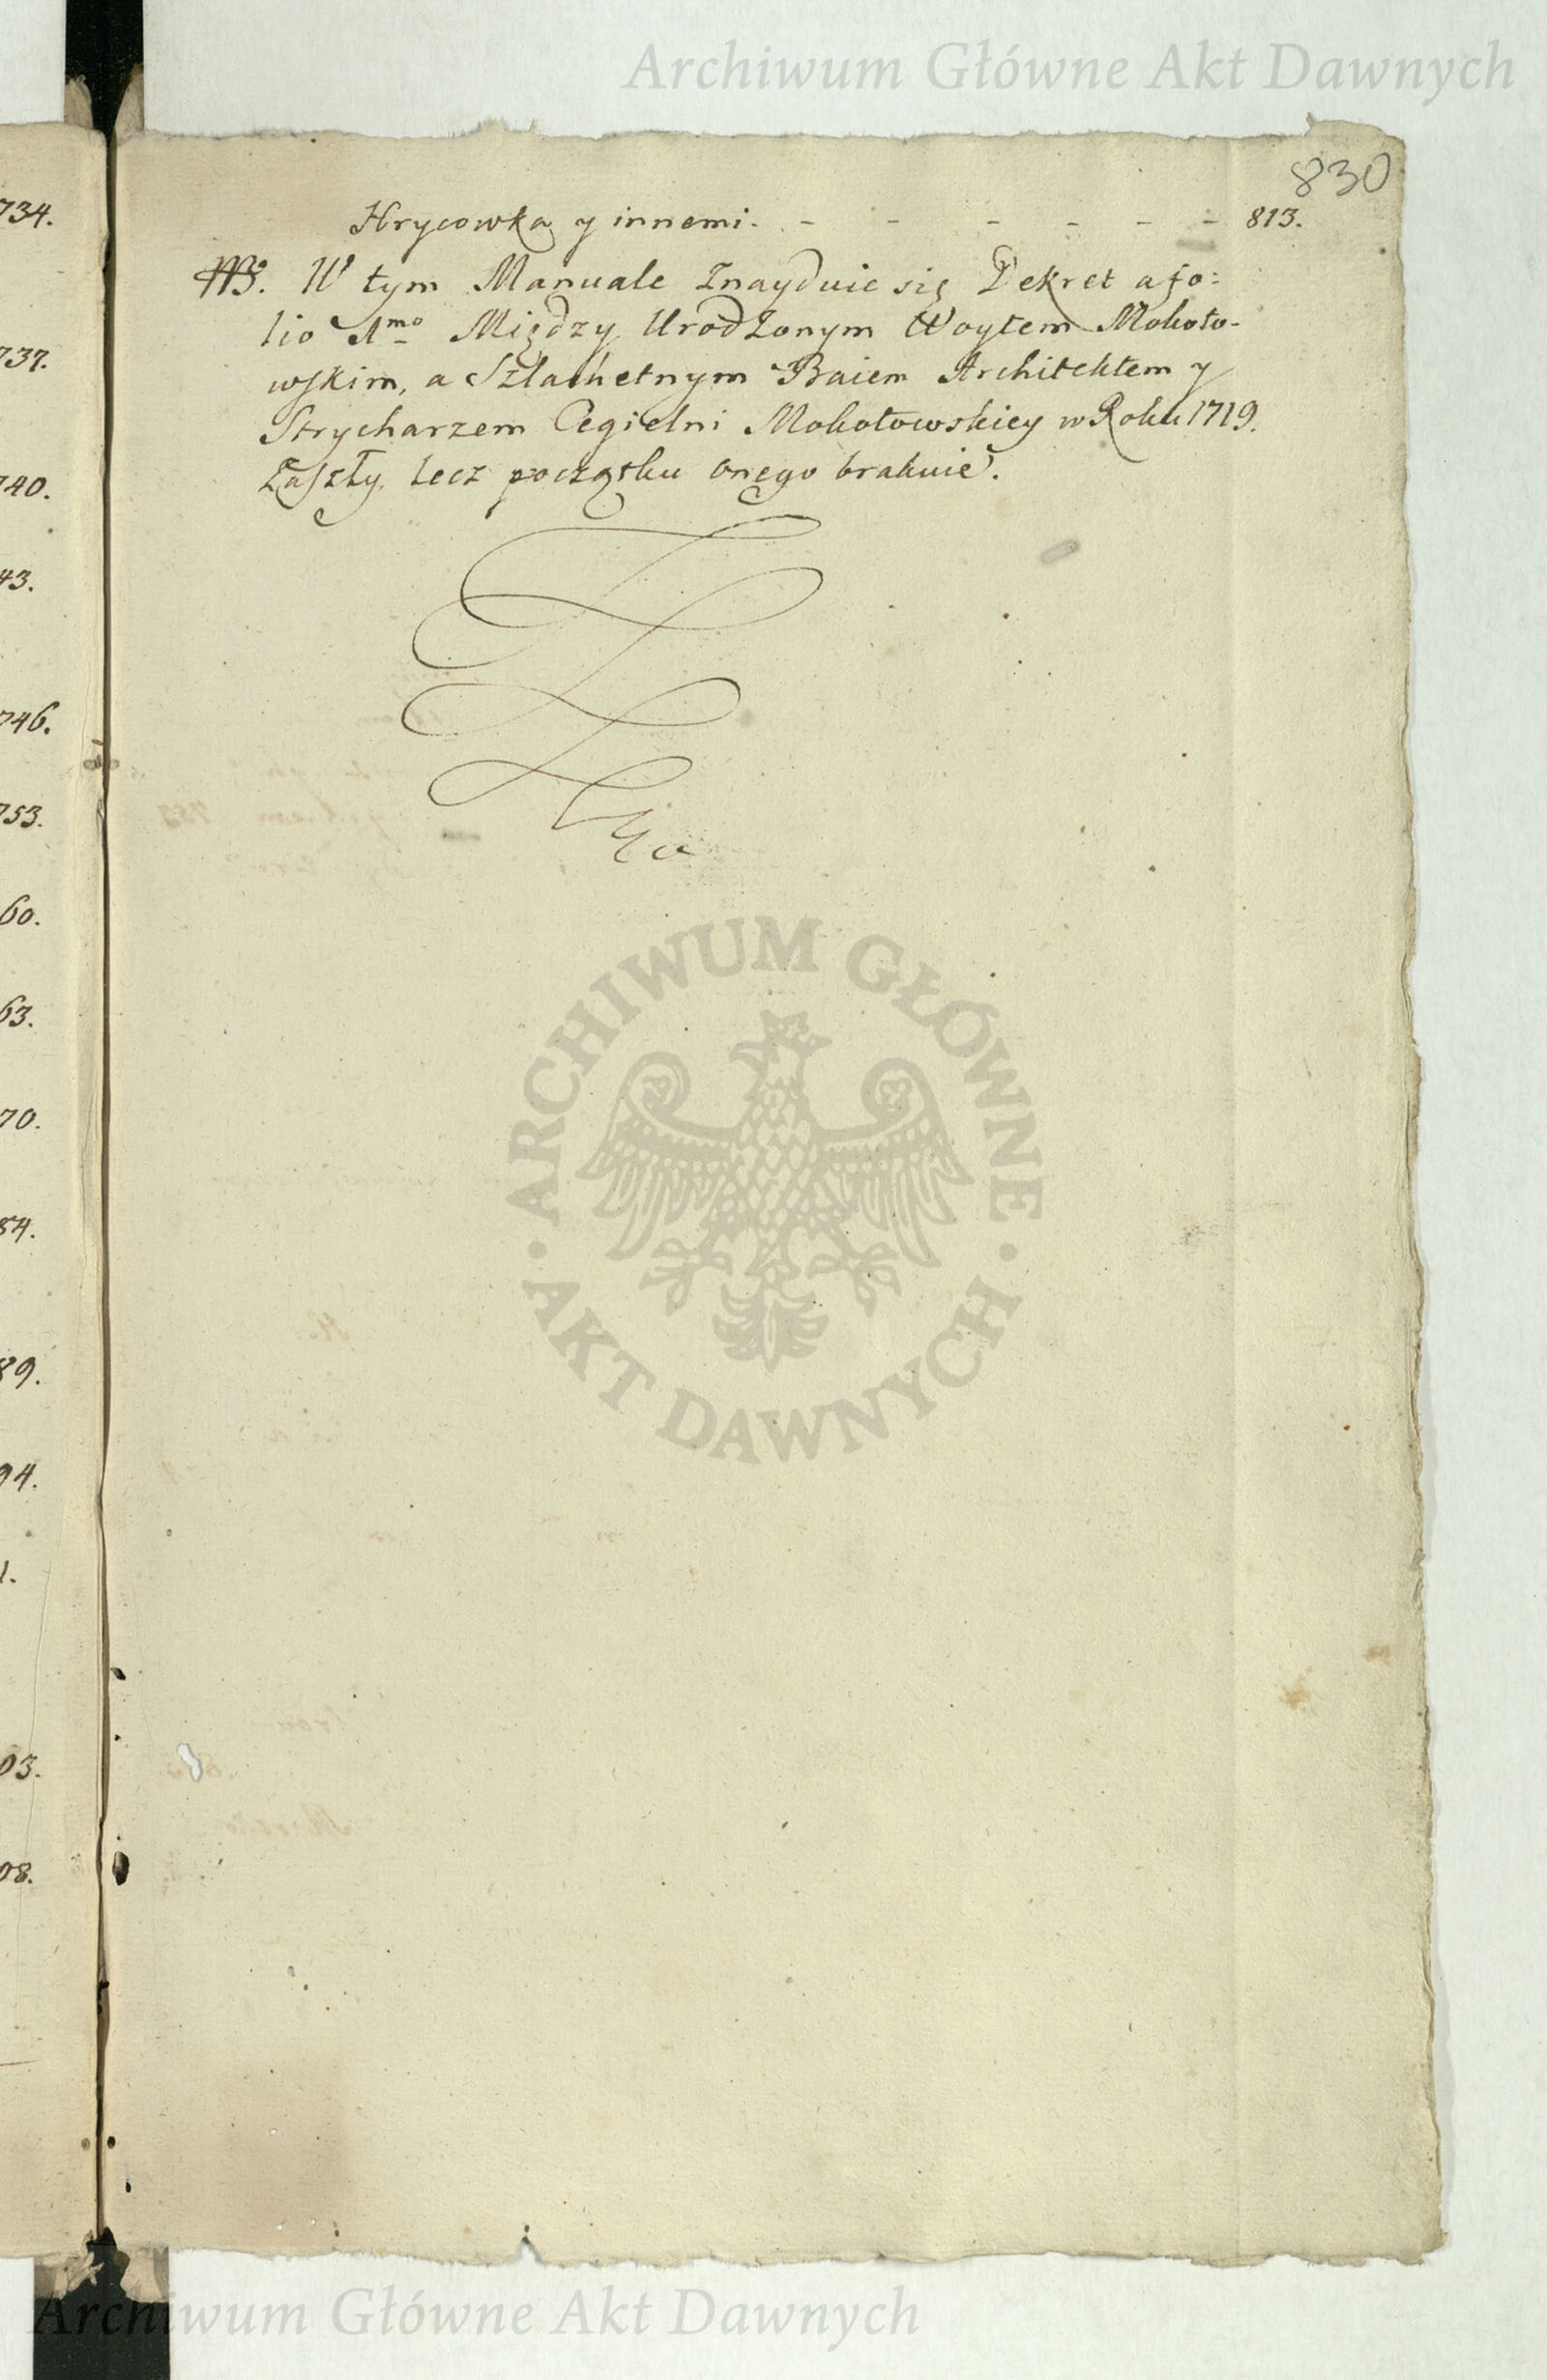 Archiwum Główne Akt Dawnych
830
734.
Hrycowką y innemi. - - - - - - 813.
NB. W tym Manuale Znayduie się Dekret a fo:
lio 1mo Między UrodZonym Woytem Mokoto-
737.
wskim, a Szlachetnym Baiem Architektem y
Strycharzem Cegielni Mokotowskiey w Roku 1719.
Zaszły, lecz początku onego brakuie.
740.
43.
746.
753.
60.
ARCHIWUM GŁÓWNE
63.
70.
84.
· AKT DAWNYCH ·
89.
94.
1.
03.
08.
Archiwum Główne Akt Dawnych